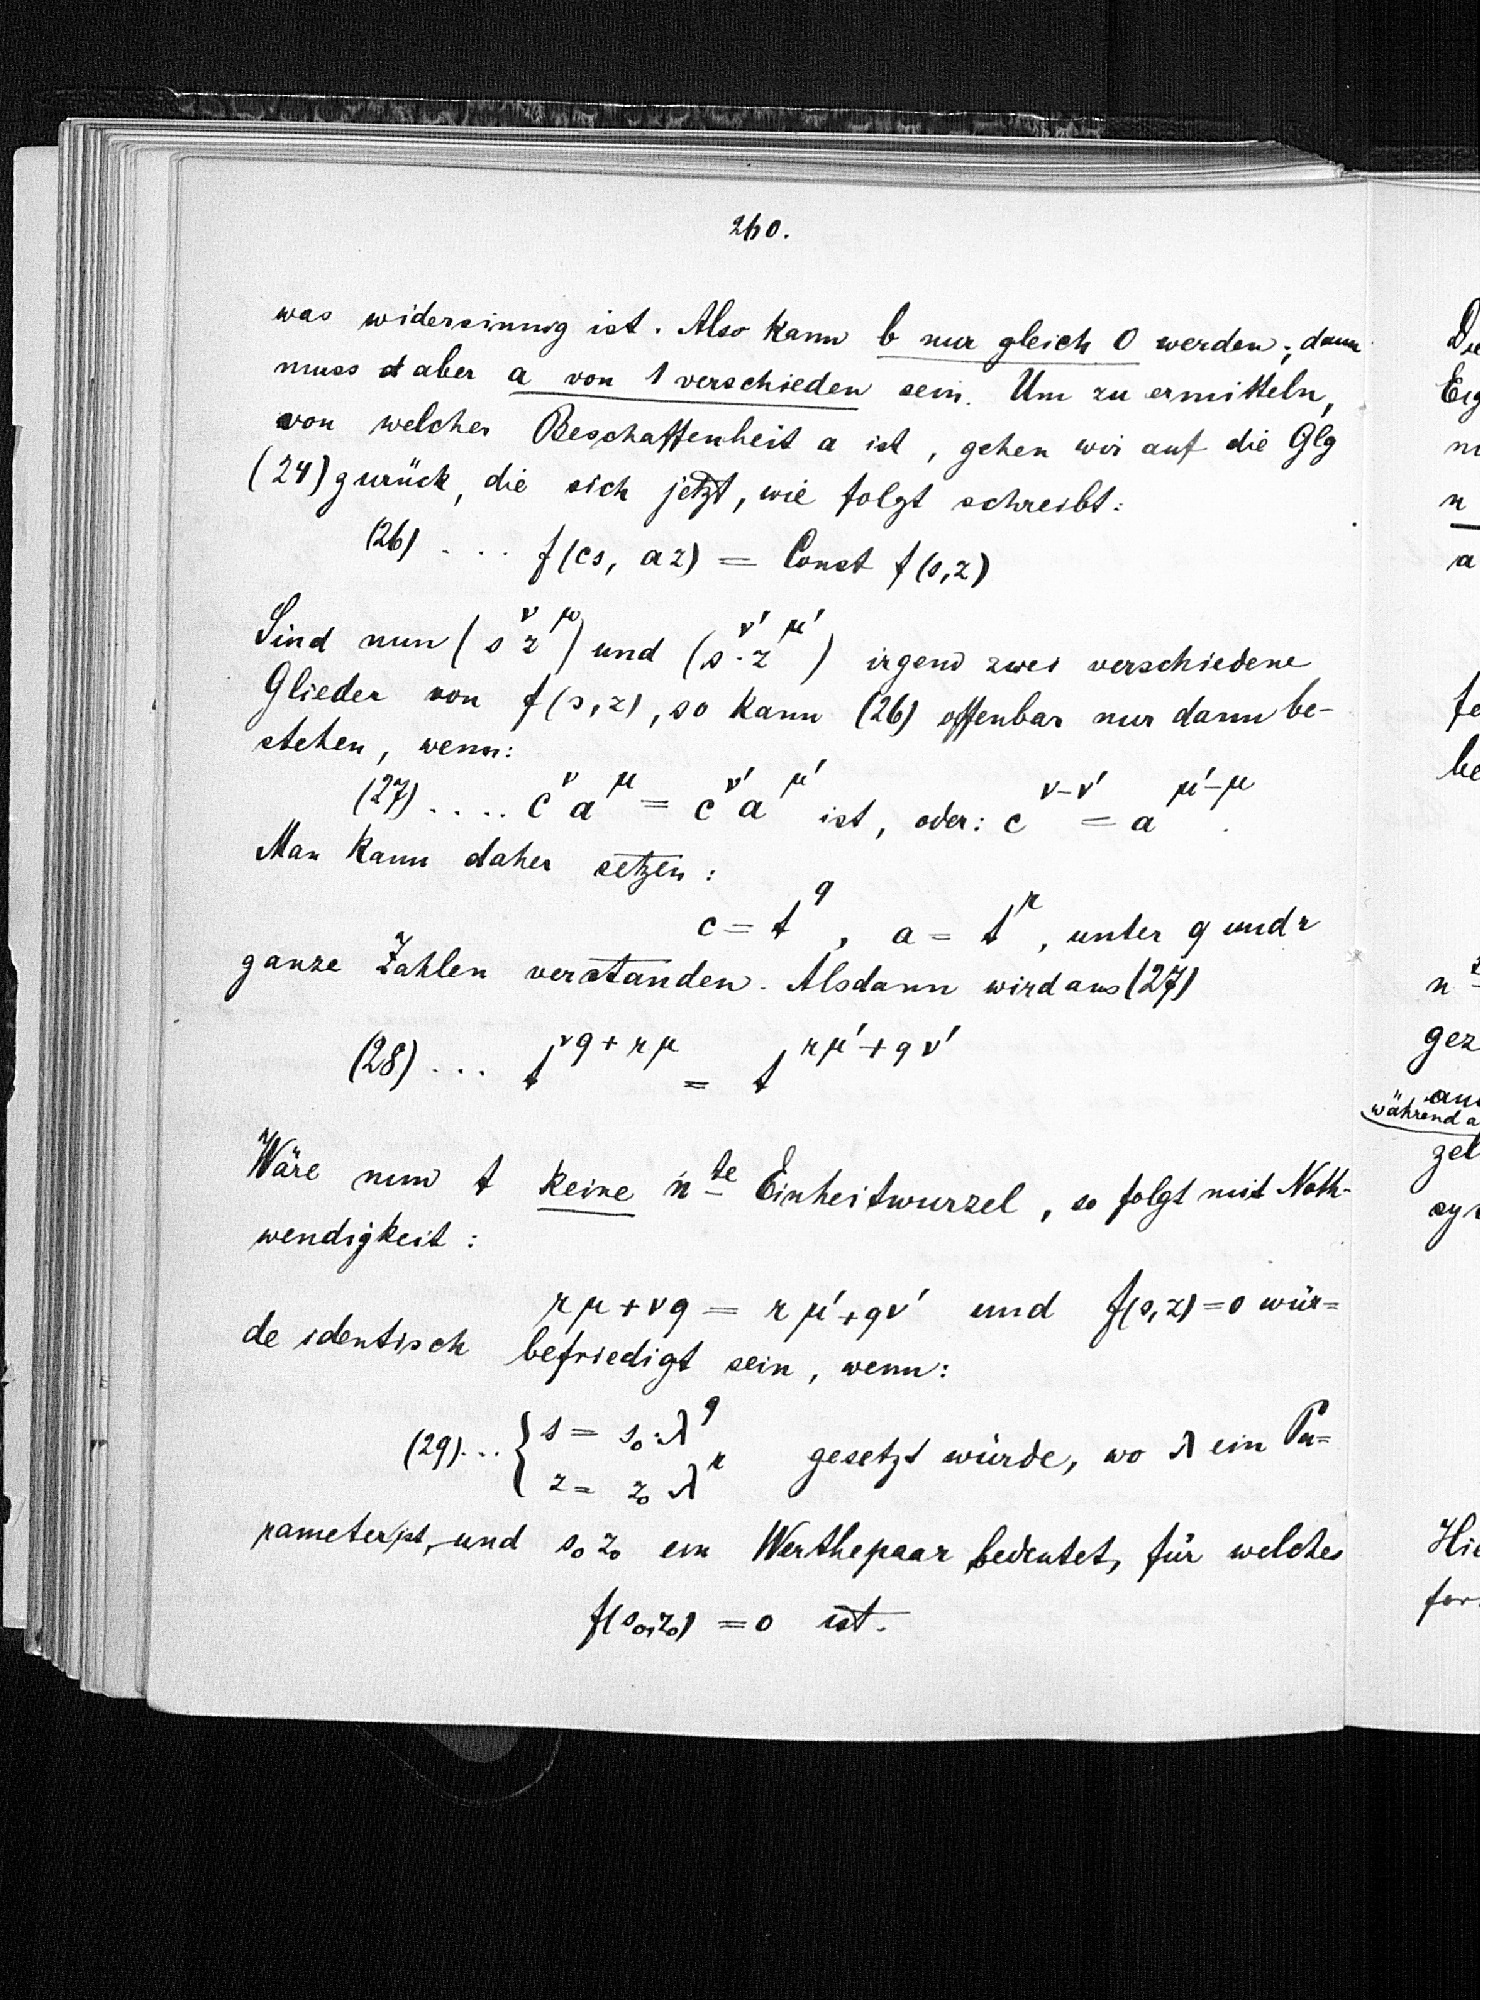 260.
was widersinnig ist. Also kann b nur gleich 0 werden; dann
muss aber a von 1 verschieden sein. Um zu ermitteln,
von welcher Beschaffenheit a ist, gehen wir auf die Glg
(24) zurück, die sich jetzt, wie folgt schreibt:
(26) . . . f(cs, az) = Const f(s,z)
Sind nun (s^ν z^μ) und (s^ν′·z^μ′) irgend zwei verschiedene
Glieder von f(s,z), so kann (26) offenbar nur dann be-
stehen, wenn:
(27) . . . . c^ν a^μ = c^ν′ a^μ′ ist, oder: c^ν-ν′ = a^μ′-μ.
Man kann daher setzen:
c = t^q, a = t^r, unter q und r
ganze Zahlen verstanden. Alsdann wird aus (27)
(28) . . . t^νq+rμ = t^rμ′+qν′
Wäre nun t keine nte Einheitwurzel, so folgt mit Noth-
wendigkeit:
rμ+νq = rμ′+qν′ und f(s,z)=0 wür=
de identisch befriedigt sein, wenn:
(29)... { s = s₀·λ^q
z = z₀ λ^r gesetzt würde, wo λ ein Pa=
rameter ist, und s₀ z₀ ein Werthepaar bedeutet, für welches
f(s₀,z₀) = 0 ist.
während a